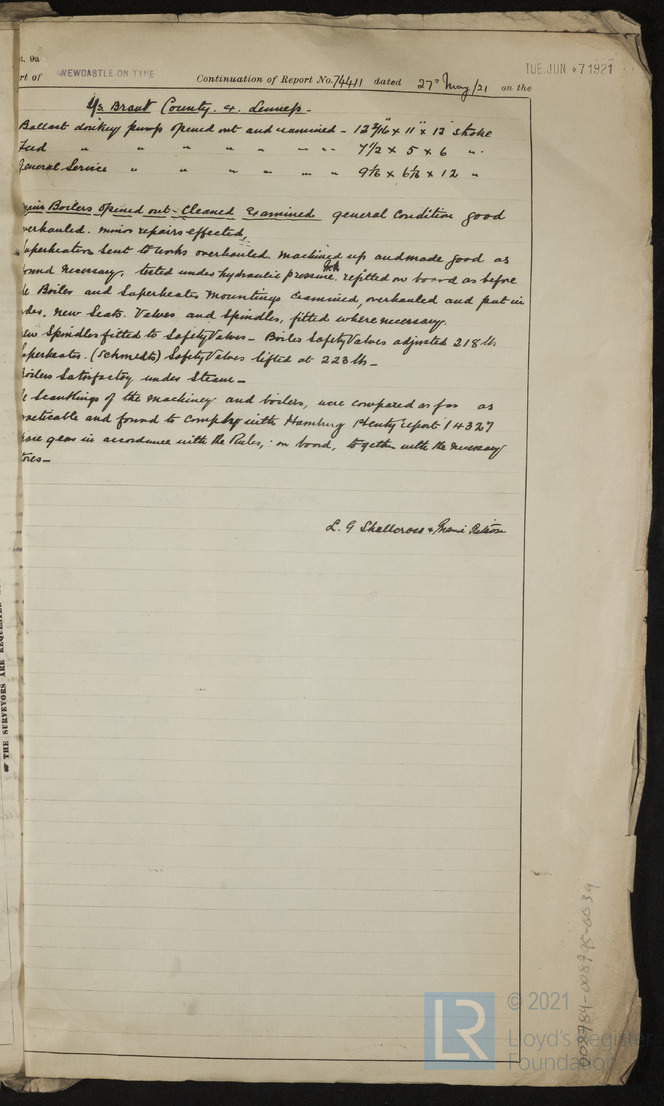 t. 9a
rt of NEWCASTLE ON TYNE Continuation of Report No. 74411 dated 27th May/21 on the
TUE. JUN. 7 1921
S/s Brant County. ex. Lennep.
Ballast donkey pump opened out and examined - 12 3/16 x 11" x 12" stroke
Feed " " " " " " " 7 1/2 x 5 x 6 "
General Service " " " " " " 9 1/8 x 6 1/8 x 12 "
Main Boilers opened out - Cleaned Examined general condition good
verhauled. minor repairs effected,
uperheaters sent to works overhauled. machined up and made good as
ound necessary, tested under hydraulic pressure. refitted on board as before
he Boiler and Superheater Mountings examined, overhauled and put in
rder. new Seats. Valves and Spindles, fitted where necessary.
ew Spindles fitted to Safety Valves - Boiler Safety Valves adjusted 218 lbs
uperheater. (Schmedts) Safety Valves lifted at 223 lbs -
Boilers Satisfactory under Steam -
he Scantlings of the machinery and boilers, were compared as far as
racticable and found to comply with Hamburg report 14327
pare gear in accordance with the Rules, on board, together with the necessary
tores -
L. G Shallcross &
OF THE SURVEYORS ARE REQUESTED
008784-008795-0034
LR
© 2021
Lloyd's Register
Foundation